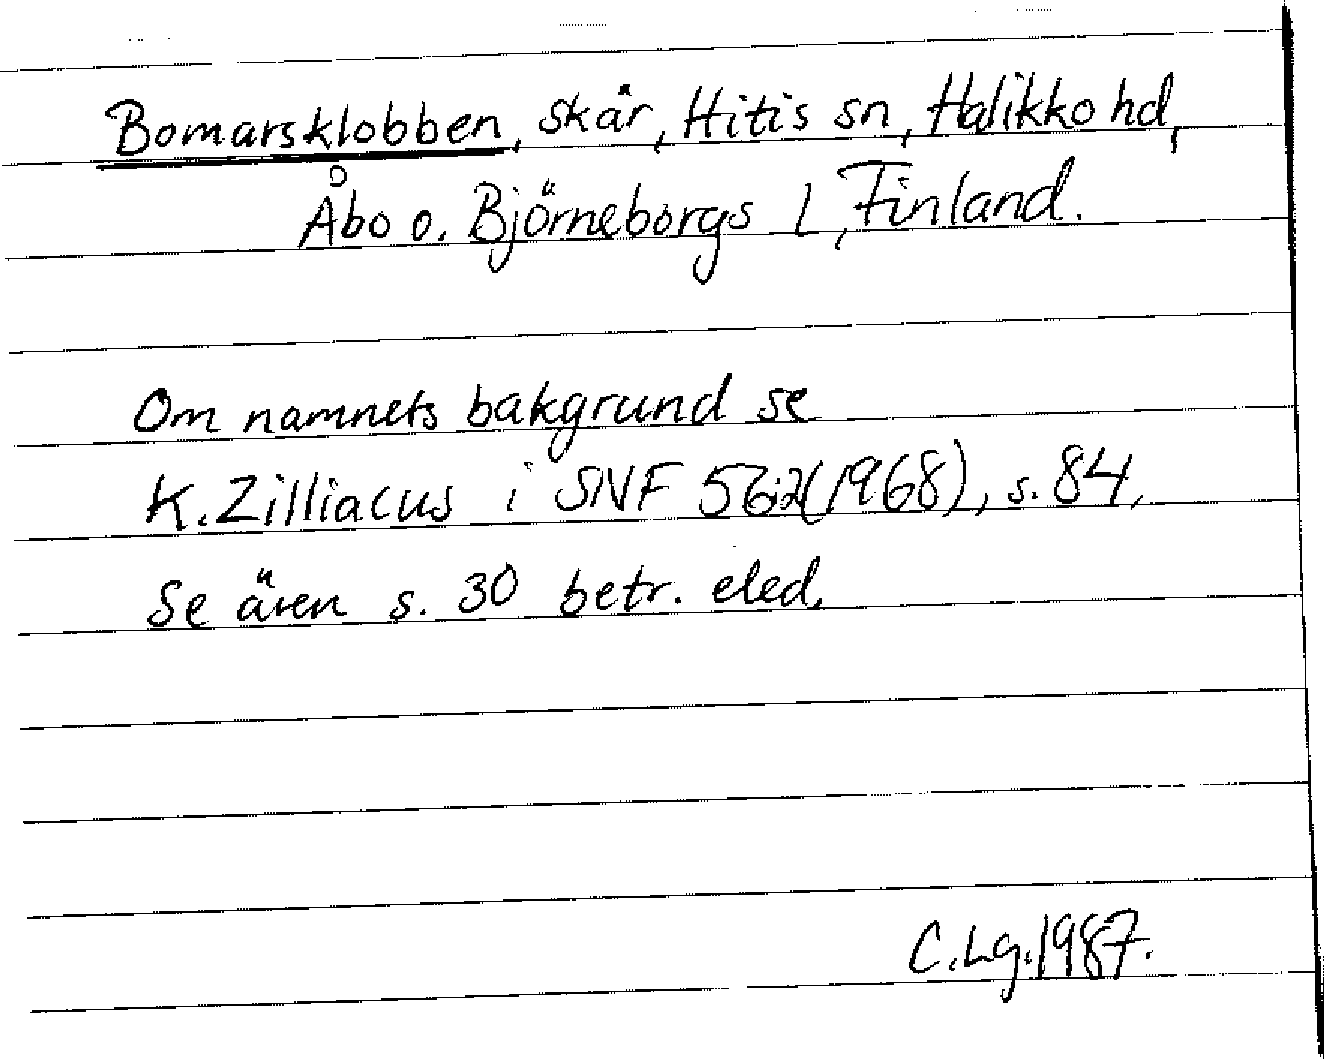 Bomarsklobben, skär, Hitis sn, Halikko hd,
Åbo o. Björneborgs l, Finland.
Om namnets bakgrund se
K. Zilliacus i SNF 56:2(1968), s. 84,
Se även s. 30 betr. eled,
C.Lg. 1987.